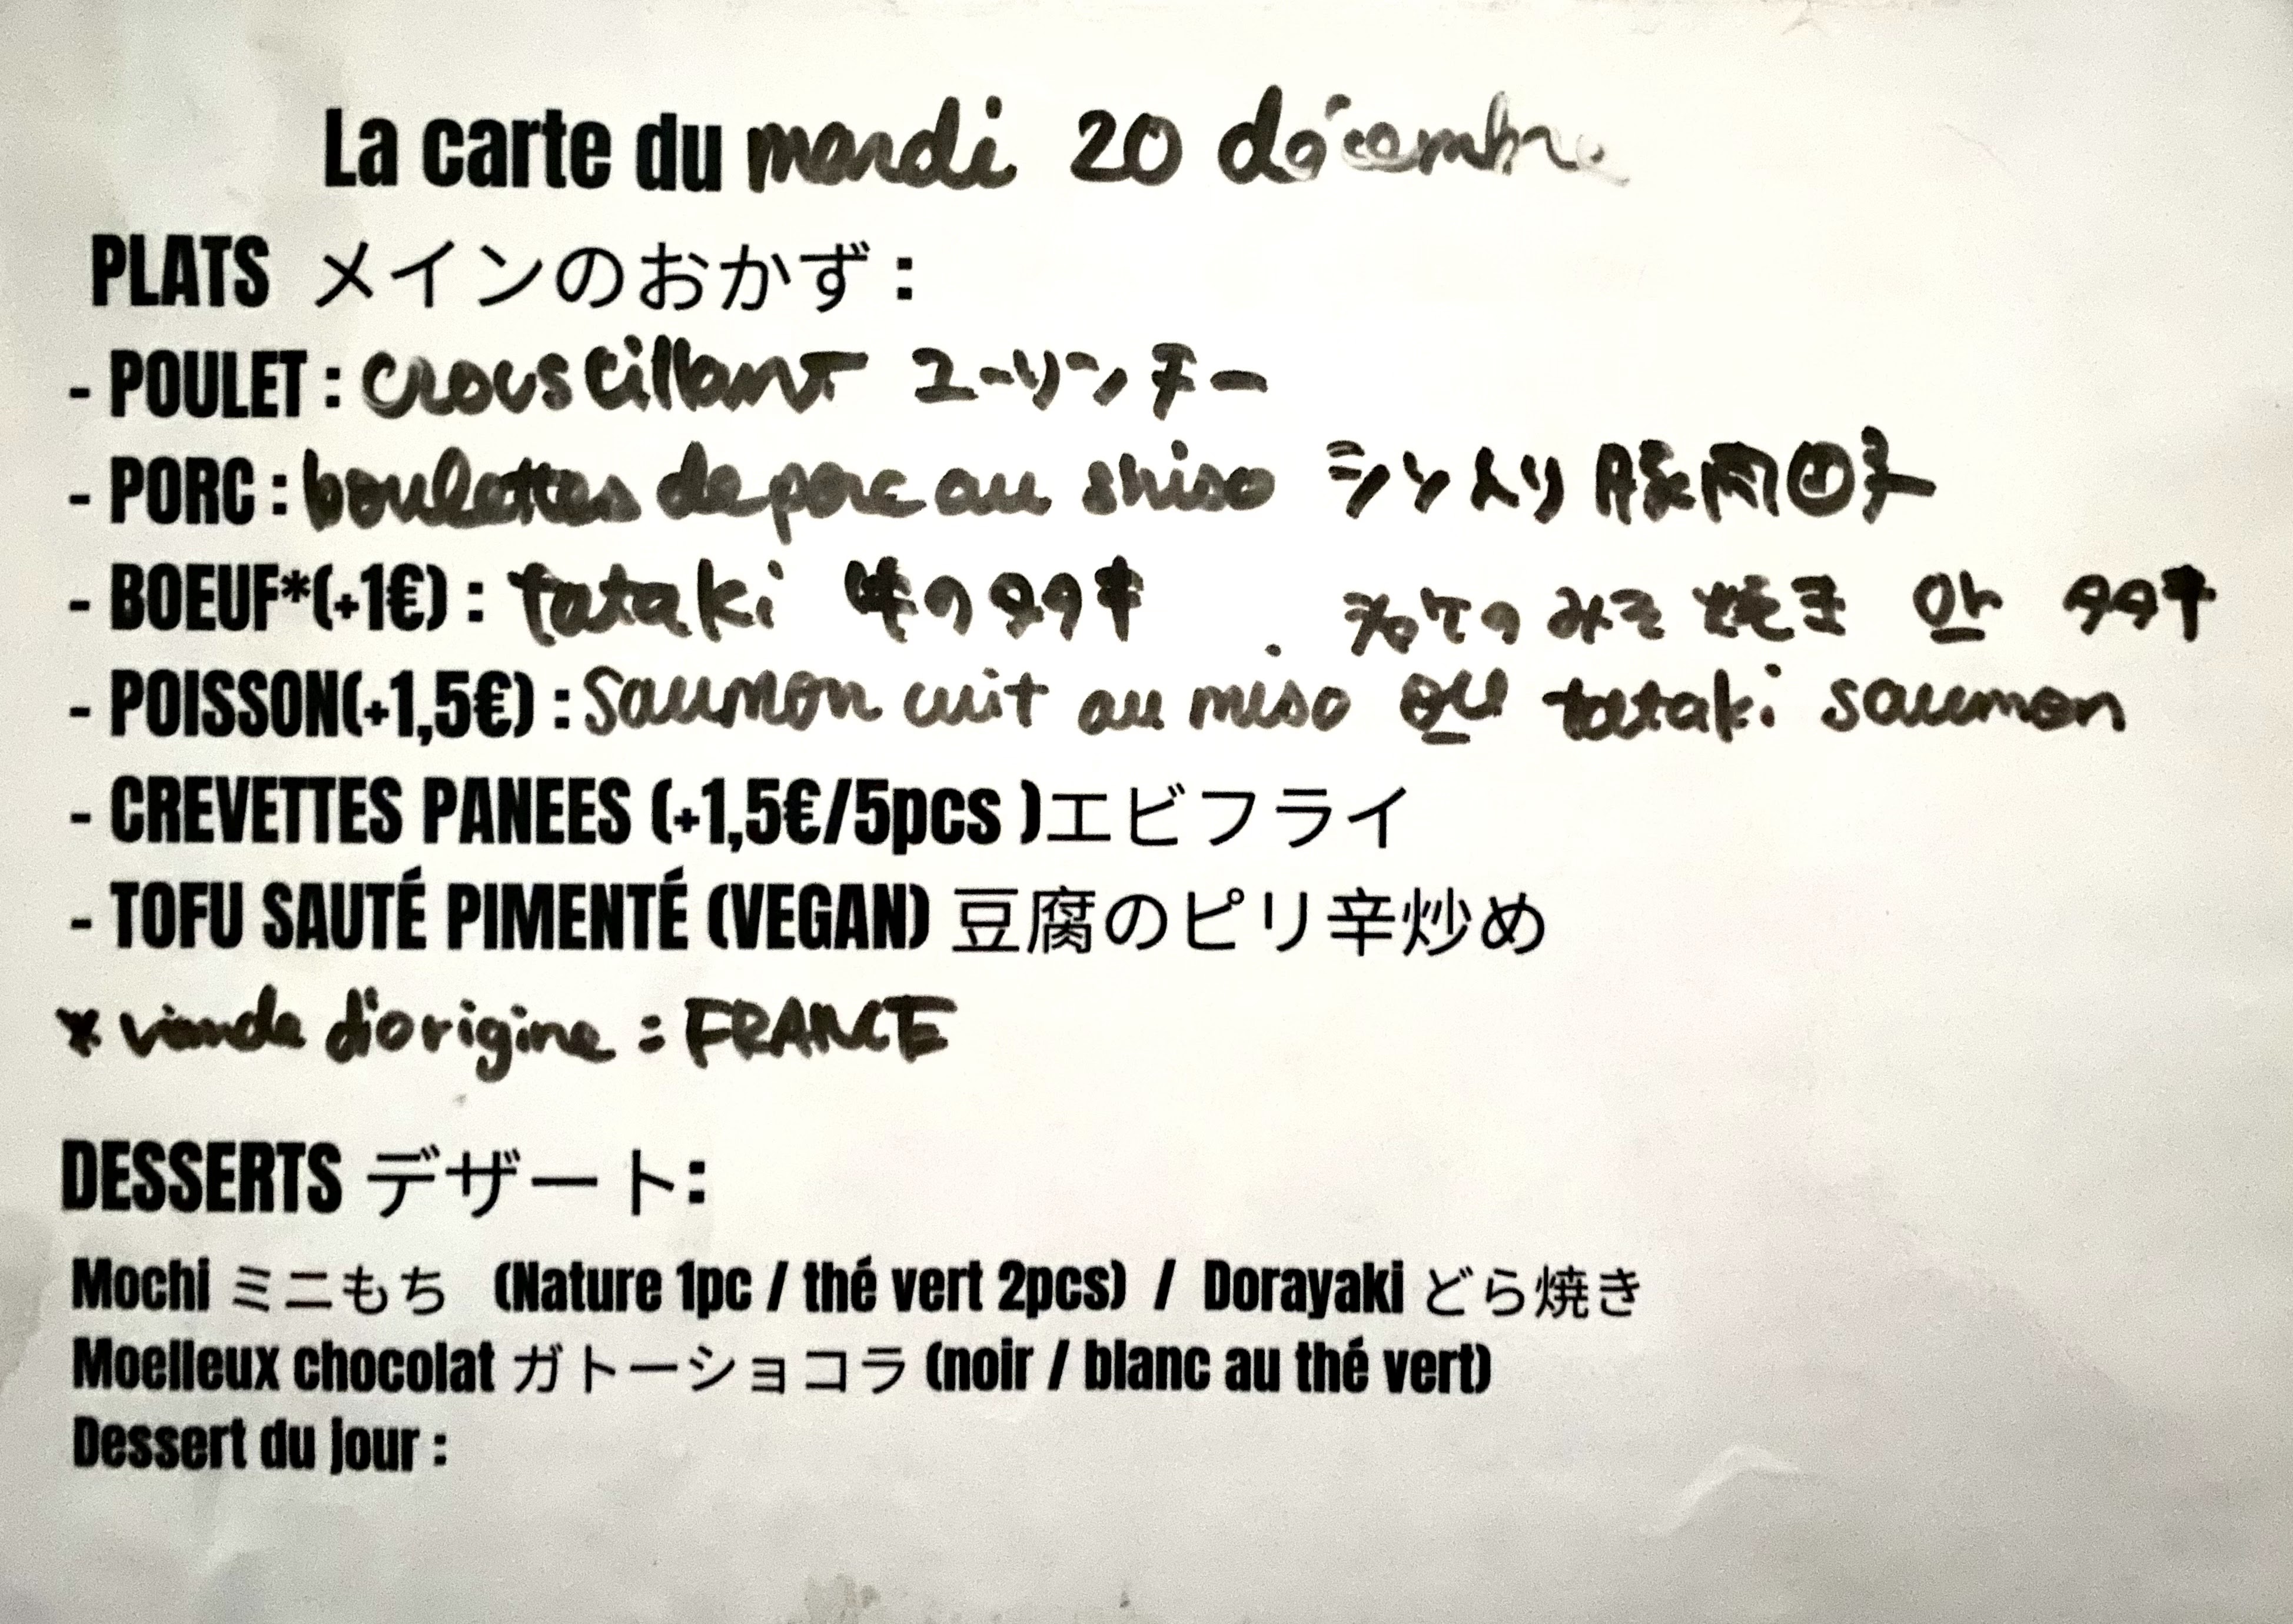 La carte du mardi 20 décembre
PLATS メインのおかず :
- POULET : croustillant ユーリンチー
- PORC : boulettes de porc au shiso シソ入り豚肉団子
- BOEUF*(+1€) : tataki 牛のタタキ
. のみそ焼き or タタキ
- POISSON(+1,5€) : Saumon cuit au miso ou tataki saumon
- CREVETTES PANEES (+1,5€/5pcs )エビフライ
- TOFU SAUTÉ PIMENTÉ (VEGAN) 豆腐のピリ辛炒め
* viande d'origine : FRANCE
DESSERTS デザート:
Mochi ミニもち (Nature 1pc / thé vert 2pcs) / Dorayaki どら焼き
Moelleux chocolat ガトーショコラ (noir / blanc au thé vert)
Dessert du jour :